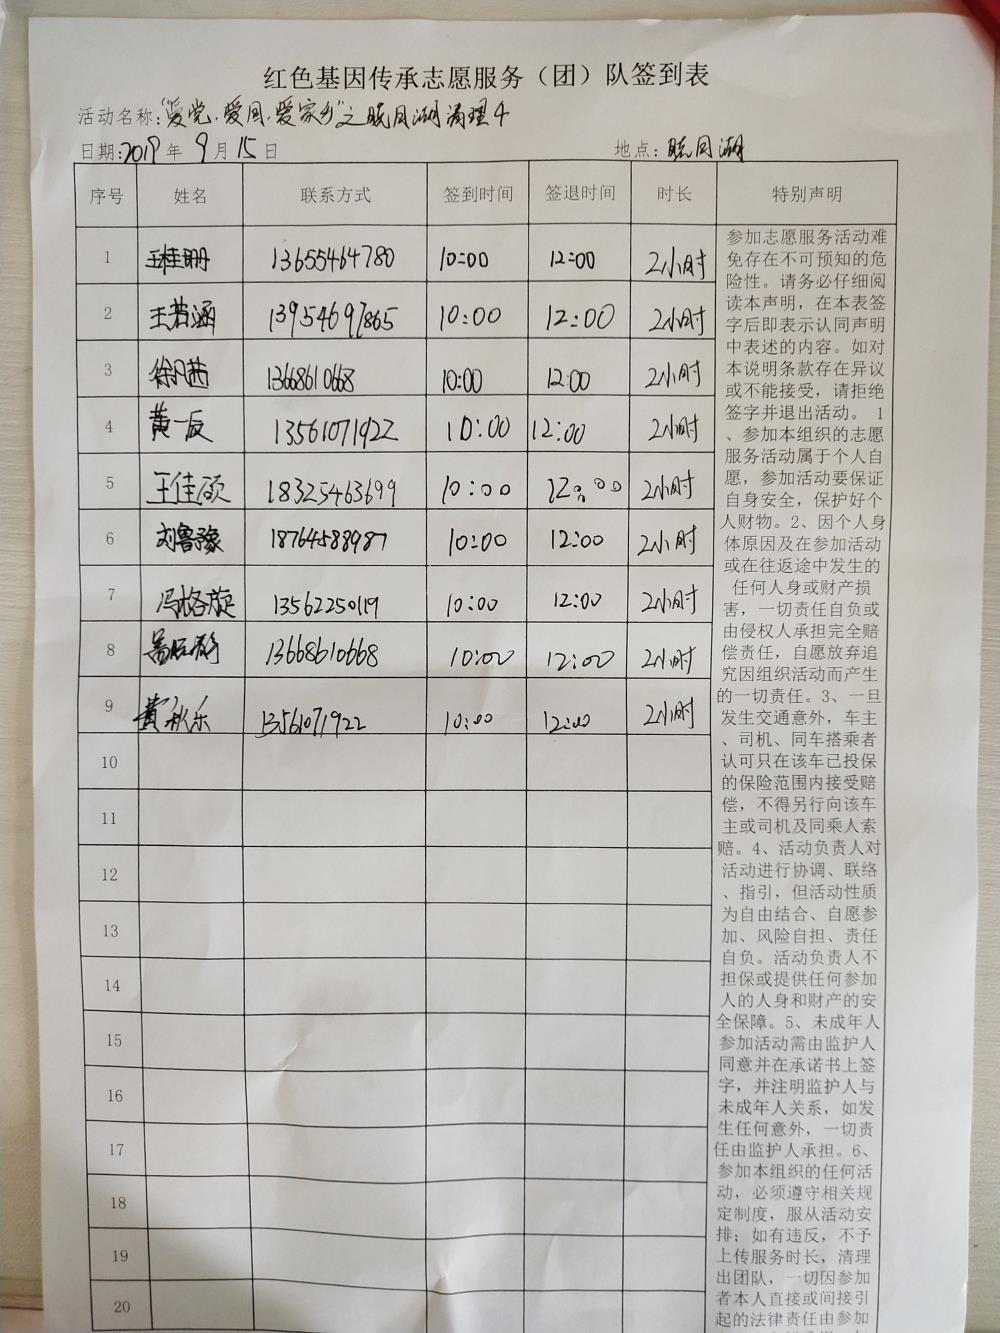 红色基因传承志愿服务（团）队签到表
活动名称：“爱党.爱国.爱家乡”之 清理4
日期：2019年9月15日 地点：
序号 姓名 联系方式 签到时间 签退时间 时长 特别声明
1 王桂珊 13655464780 10:00 12:00 2小时
2 王若涵 13954697865 10:00 12:00 2小时
3 徐凡茜 13668610668 10:00 12:00 2小时
4 黄一辰 13561071922 10:00 12:00 2小时
5 王佳硕 18325463699 10:00 12:00 2小时
6 刘鲁豫 18764588987 10:00 12:00 2小时
7 冯格旋 13562250119 10:00 12:00 2小时
8 13668610668 10:00 12:00 2小时
9 黄秋乐 13561071922 10:00 12:00 2小时
10
11
12
13
14
15
16
17
18
19
20
参加志愿服务活动难
免存在不可预知的危
险性。请务必仔细阅
读本声明，在本表签
字后即表示认同声明
中表述的内容。如对
本说明条款存在异议
或不能接受，请拒绝
签字并退出活动。 1
、参加本组织的志愿
服务活动属于个人自
愿，参加活动要保证
自身安全，保护好个
人财物。2、因个人身
体原因及在参加活动
或在往返途中发生的
任何人身或财产损
害，一切责任自负或
由侵权人承担完全赔
偿责任，自愿放弃追
究因组织活动而产生
的一切责任。3、一旦
发生交通意外，车主
、司机、同车搭乘者
认可只在该车已投保
的保险范围内接受赔
偿，不得另行向该车
主或司机及同乘人索
赔。4、活动负责人对
活动进行协调、联络
、指引，但活动性质
为自由结合、自愿参
加、风险自担、责任
自负。活动负责人不
担保或提供任何参加
人的人身和财产的安
全保障。5、未成年人
参加活动需由监护人
同意并在承诺书上签
字，并注明监护人与
未成年人关系，如发
生任何意外，一切责
任由监护人承担。6、
参加本组织的任何活
动，必须遵守相关规
定制度，服从活动安
排；如有违反，不予
上传服务时长，清理
出团队，一切因参加
者本人直接或间接引
起的法律责任由参加